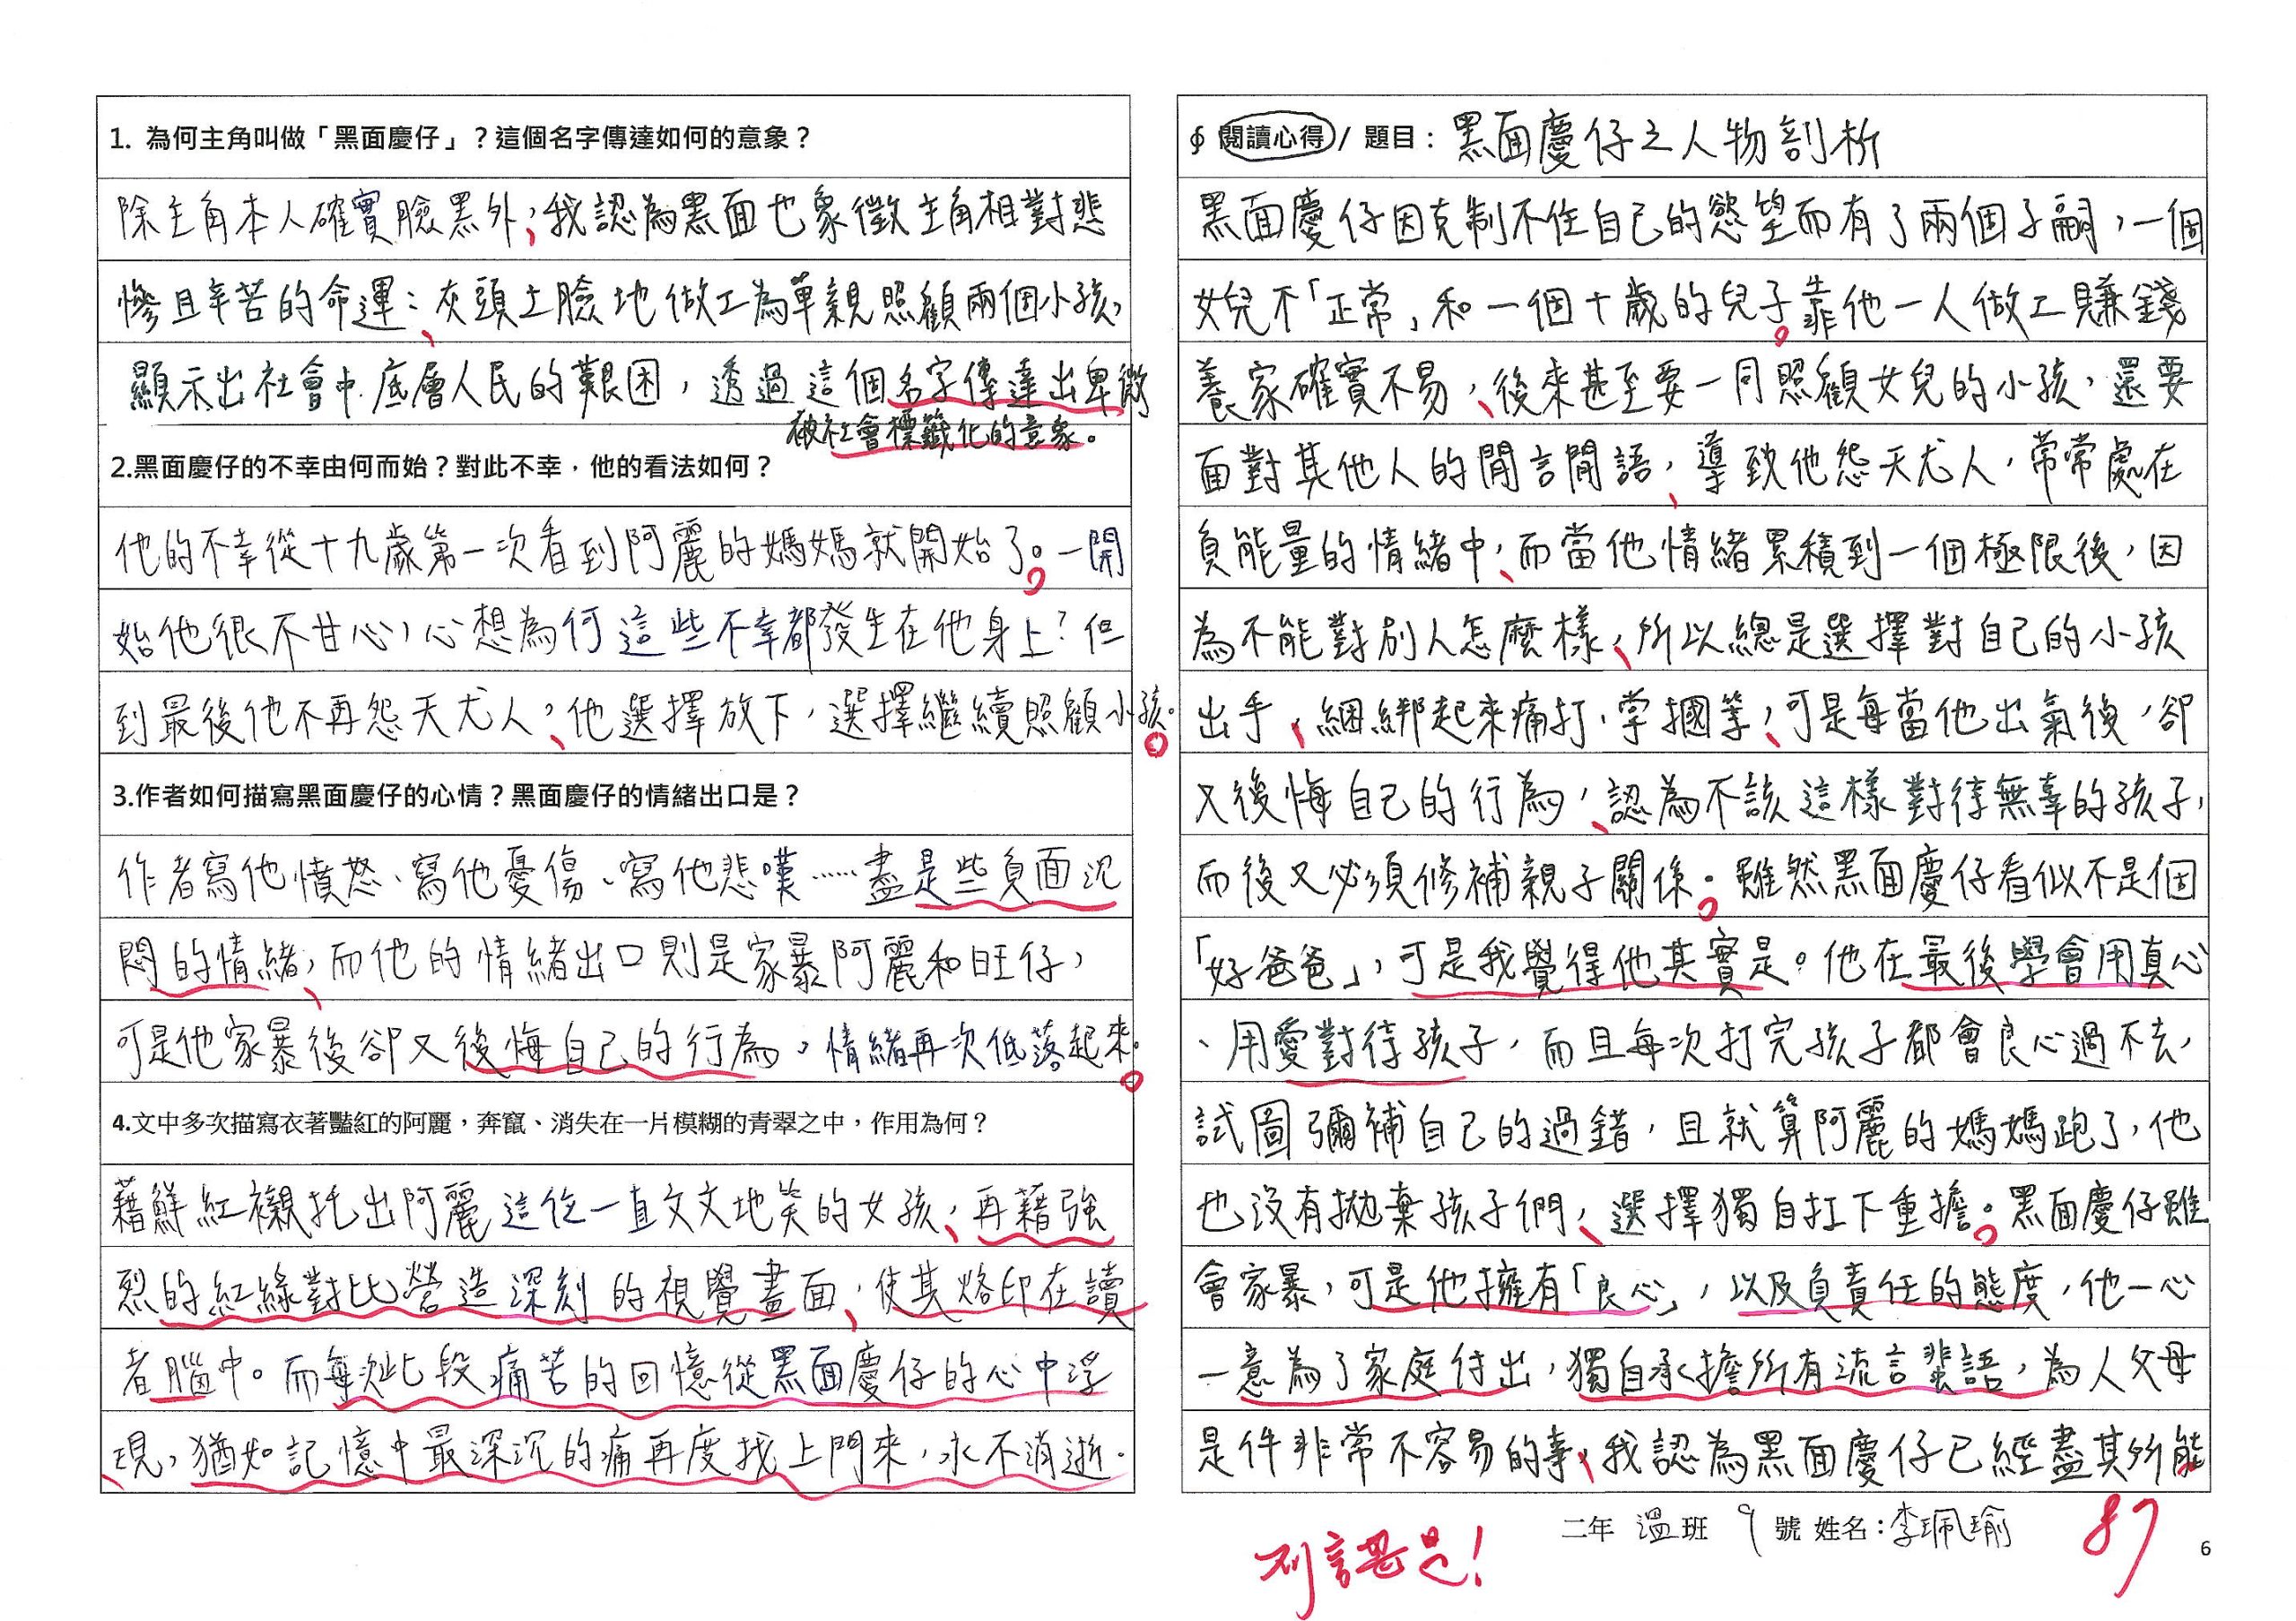 1. 為何主角叫做「黑面慶仔」？這個名字傳達如何的意象？
除主角本人確實臉黑外，我認為黑面也象徵主角相對悲
慘且辛苦的命運：灰頭土臉地做工為單親照顧兩個小孩，
顯示出社會中底層人民的艱困，透過這個名字傳達出卑微
被社會標籤化的意象。
2.黑面慶仔的不幸由何而始？對此不幸，他的看法如何？
他的不幸從十九歲第一次看到阿麗的媽媽就開始了。一開
始他很不甘心，心想為何這些不幸都發生在他身上？但
到最後他不再怨天尤人，他選擇放下，選擇繼續照顧小孩。
3.作者如何描寫黑面慶仔的心情？黑面慶仔的情緒出口是？
作者寫他憤怒、寫他憂傷、寫他悲嘆……盡是些負面沉
悶的情緒，而他的情緒出口則是家暴阿麗和旺仔，
可是他家暴後卻又後悔自己的行為，情緒再次低落起來。
4.文中多次描寫衣著豔紅的阿麗，奔竄、消失在一片模糊的青翠之中，作用為何？
藉鮮紅襯托出阿麗這位一直文文地笑的女孩，再藉強
烈的紅綠對比營造深刻的視覺畫面，使其烙印在讀
者腦中。而每次此段痛苦的回憶從黑面慶仔的心中浮
現，猶如記憶中最深沉的痛再度找上門來，永不消逝。
∮ 閱讀心得 / 題目：黑面慶仔之人物剖析
黑面慶仔因克制不住自己的慾望而有了兩個子嗣，一個
女兒不「正常」和一個十歲的兒子。靠他一人做工賺錢
養家確實不易，後來甚至要一同照顧女兒的小孩，還要
面對其他人的閒言閒語，導致他怨天尤人，常常處在
負能量的情緒中，而當他情緒累積到一個極限後，因
為不能對別人怎麼樣，所以總是選擇對自己的小孩
出手，綑綁起來痛打、掌摑等，可是每當他出氣後，卻
又後悔自己的行為，認為不該這樣對待無辜的孩子，
而後又必須修補親子關係。雖然黑面慶仔看似不是個
「好爸爸」，可是我覺得他其實是。他在最後學會用真心
、用愛對待孩子，而且每次打完孩子都會良心過不去，
試圖彌補自己的過錯，且就算阿麗的媽媽跑了，他
也沒有拋棄孩子們，選擇獨自扛下重擔。黑面慶仔雖
會家暴，可是他擁有「良心」，以及負責任的態度，他一心
一意為了家庭付出，獨自承擔所有流言蜚語，為人父母
是件非常不容易的事，我認為黑面慶仔已經盡其所能
二年 溫班 9 號 姓名：李珮瑜
87
6